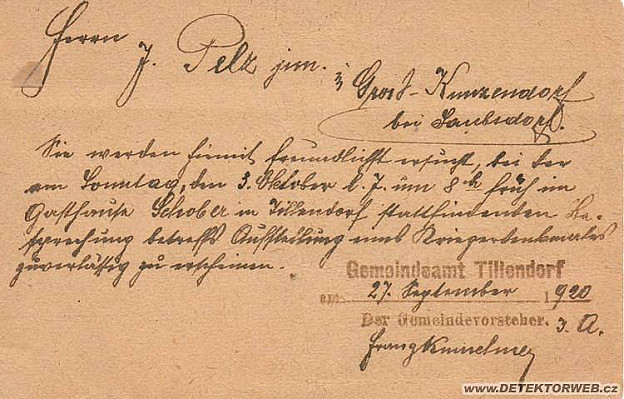 Herrn
J. Pelz jun.
Gross-Kunzendorf
bei Saubsdorf.
Sie werden hiemit freundlichst ersucht, bei der
am Sonntag, den 3. Oktober l. J. um 8h früh im
Gasthause Schober in Tillendorf stattfindenden Be-
sprechung betreffs Aufstellung eines Kriegerdenkmales
zuverlässig zu erscheinen.
Gemeindeamt Tillendorf
am 27. September 1920
Der Gemeindevorsteher. I. A.
Franz
www.DETEKTORWEB.cz